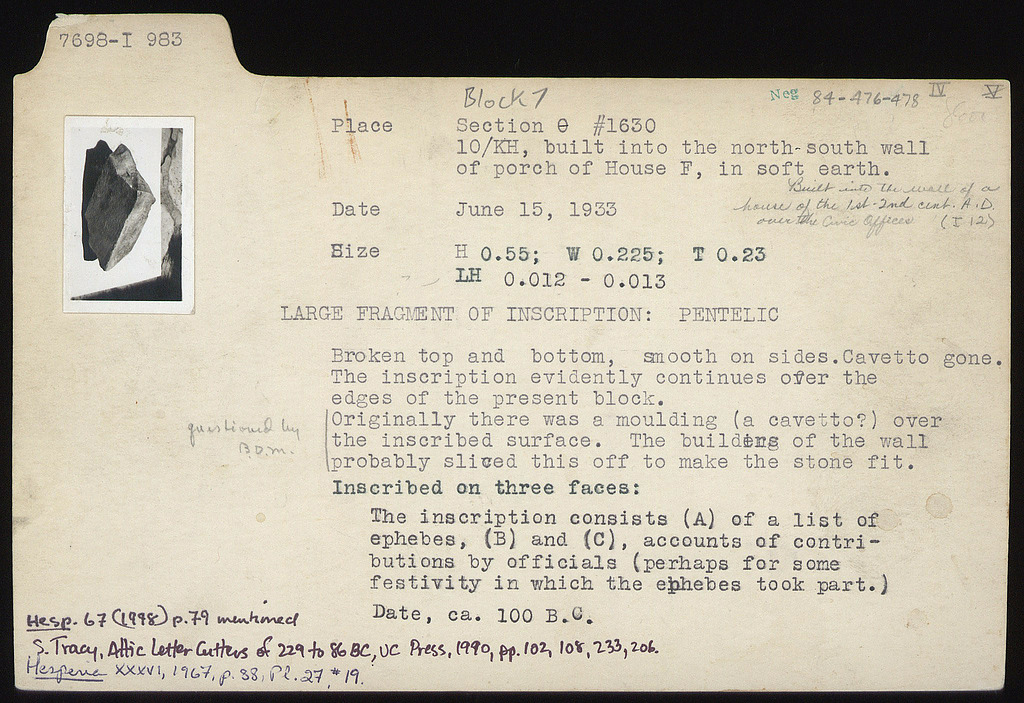 7698-I 983
Block 7
Neg 84-476-478 IV V
Place Section Θ #1630
10/KH, built into the north-south wall
of porch of House F, in soft earth.
Built into the wall of a
house of the 1st-2nd cent. A.D.
over the Civic Offices (I 12)
Date June 15, 1933
Size H 0.55; W 0.225; T 0.23
LH 0.012 - 0.013
LARGE FRAGMENT OF INSCRIPTION: PENTELIC
Broken top and bottom, smooth on sides. Cavetto gone.
The inscription evidently continues over the
edges of the present block.
Originally there was a moulding (a cavetto?) over
the inscribed surface. The builders of the wall
probably sliced this off to make the stone fit.
questioned by
B.D.M.
Inscribed on three faces:
The inscription consists (A) of a list of
ephebes, (B) and (C), accounts of contri-
butions by officials (perhaps for some
festivity in which the ephebes took part.)
Date, ca. 100 B.C.
Hesp. 67 (1998) p. 79 mentioned
S. Tracy, Attic Letter Cutters of 229 to 86 BC, UC Press, 1990, pp. 102, 108, 233, 206.
Hesperia XXXVI, 1967, p. 88, Pl. 27, #19.